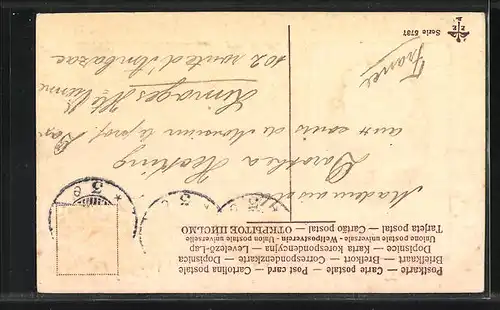 Postkarte — Carte postale — Post card — Cartolina postale
Briefkaart — Brefkort — Correspondenzkarte — Dopisnica
Dopisnice — Karta korespondencyjna — Levelező-Lap
Unione postale universale - Weltpostverein - Union postale universelle
Tarjeta postal — Cartão postal — ОТКРЫТОЕ ПИСЬМО
Mademoiselle
Dorothea
aux soins de Monsieur le prof.
Limoges Hte Vienne
102 route d'Ambazac
France
Serie 6787
3 e
3 e